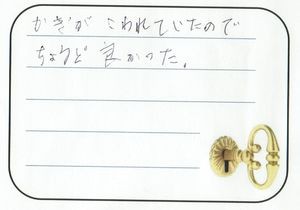 かぎが こわれていたので
ちょうど 良かった。